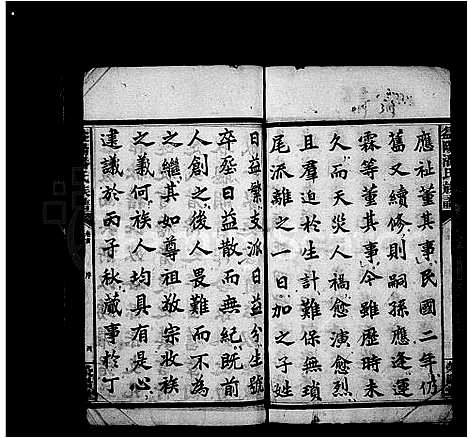 應祉董其事民國二年仍
舊又續修則嗣孫應逢運
霖等董其事今雖歷時未
久而天災人禍愈演愈烈
且羣迫於生計難保無瑣
尾流離之一日加之子姓
日益繁支派日益分生歿
卒塟日益散而無紀旣前
人創之後人畏難而不為
之繼其如尊祖故宗收族
之義何族人均具有是心
建議於丙子秋蕆事於丁